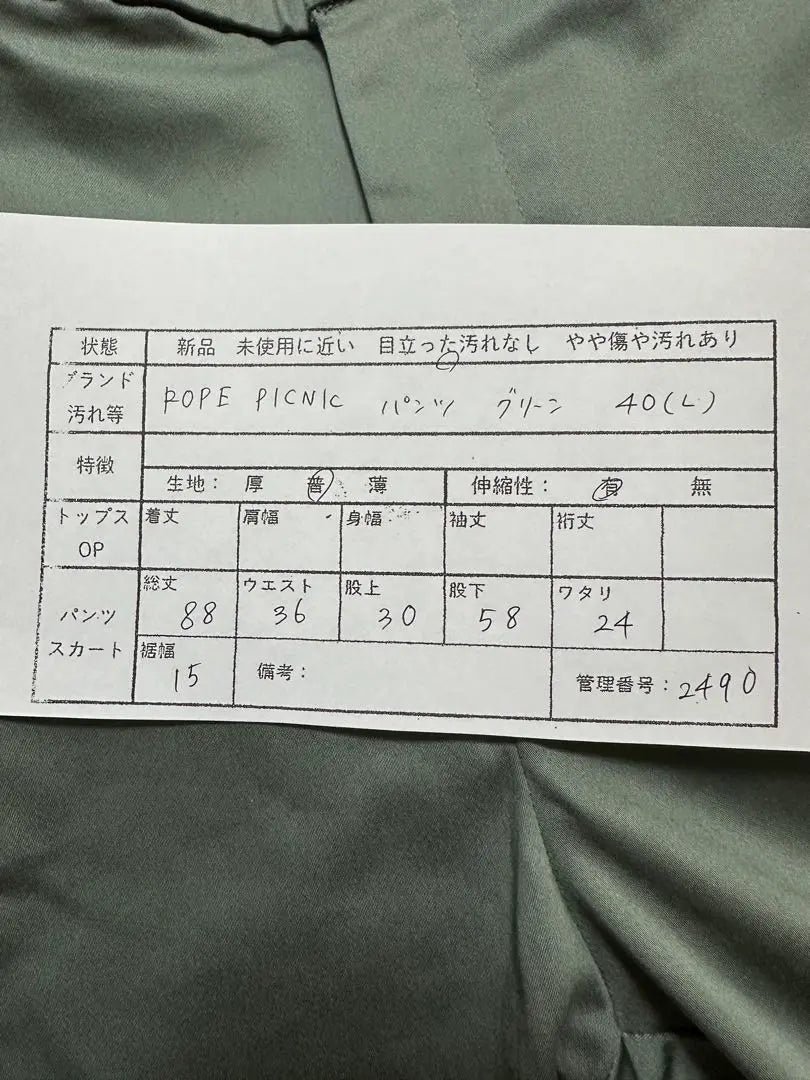 状態 新品 未使用に近い 目立った汚れなし やや傷や汚れあり
ブランド
汚れ等 ROPE PICNIC パンツ グリーン 40(L)
特徴
生地： 厚 普 薄 伸縮性： 有 無
トップス
OP 着丈 肩幅 身幅 袖丈 裄丈
パンツ
スカート 総丈 ウエスト 股上 股下 ワタリ
88 36 30 58 24
裾幅 備考： 管理番号：2490
15